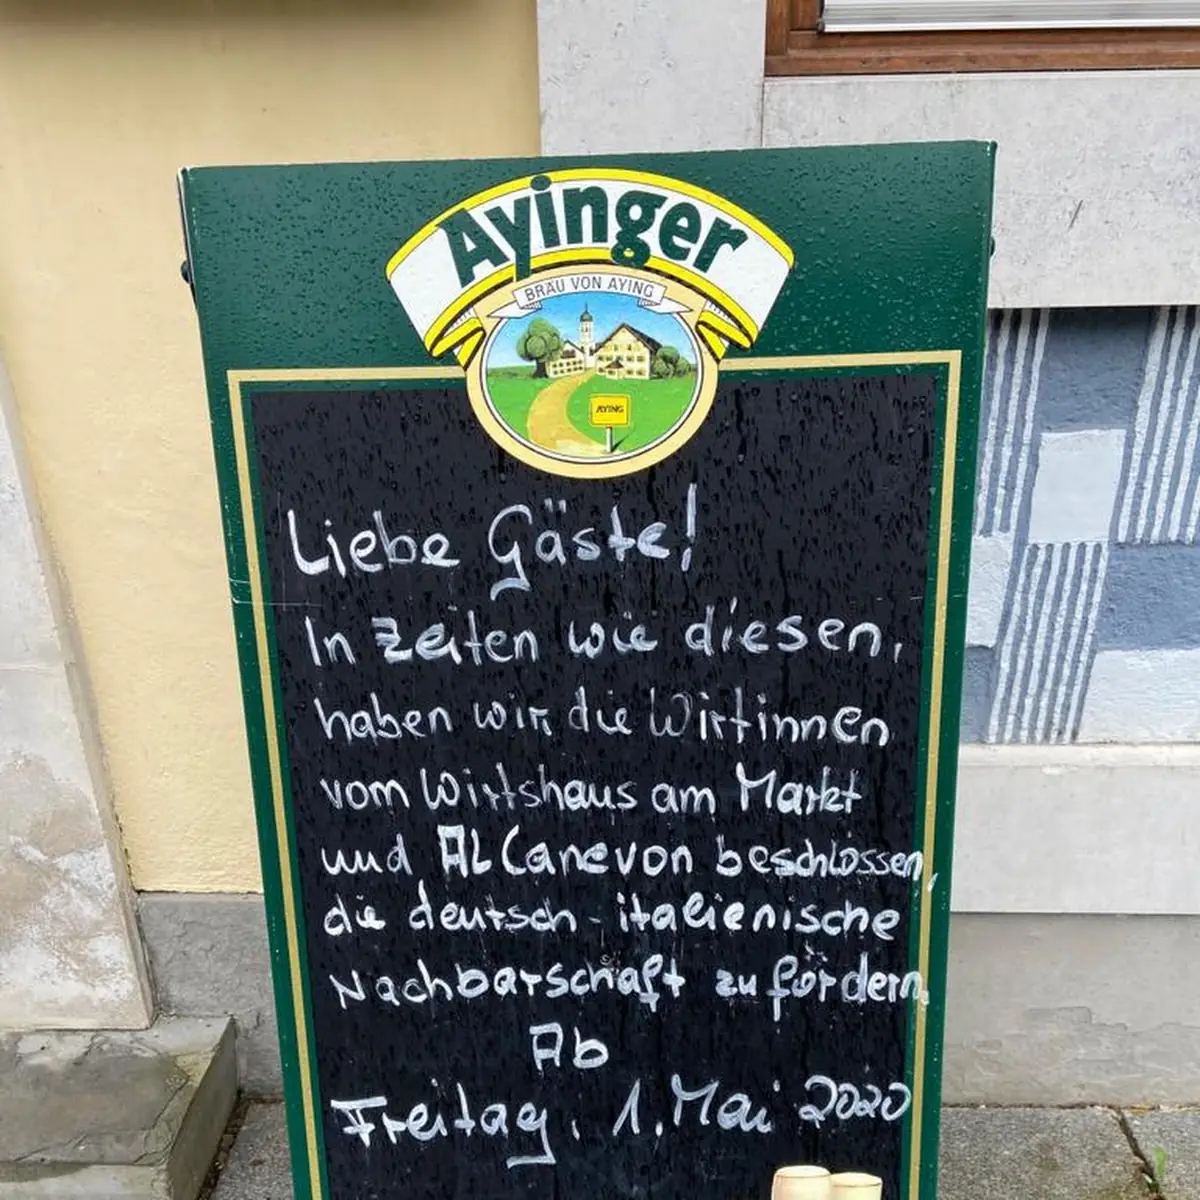 Ayinger
BRÄU VON AYING
AYING
Liebe Gäste!
In Zeiten wie diesen,
haben wir die Wirtinnen
vom Wirtshaus am Markt
und AL Canevon beschlossen,
die deutsch-italienische
Nachbarschaft zu fördern.
Ab
Freitag, 1. Mai 2020